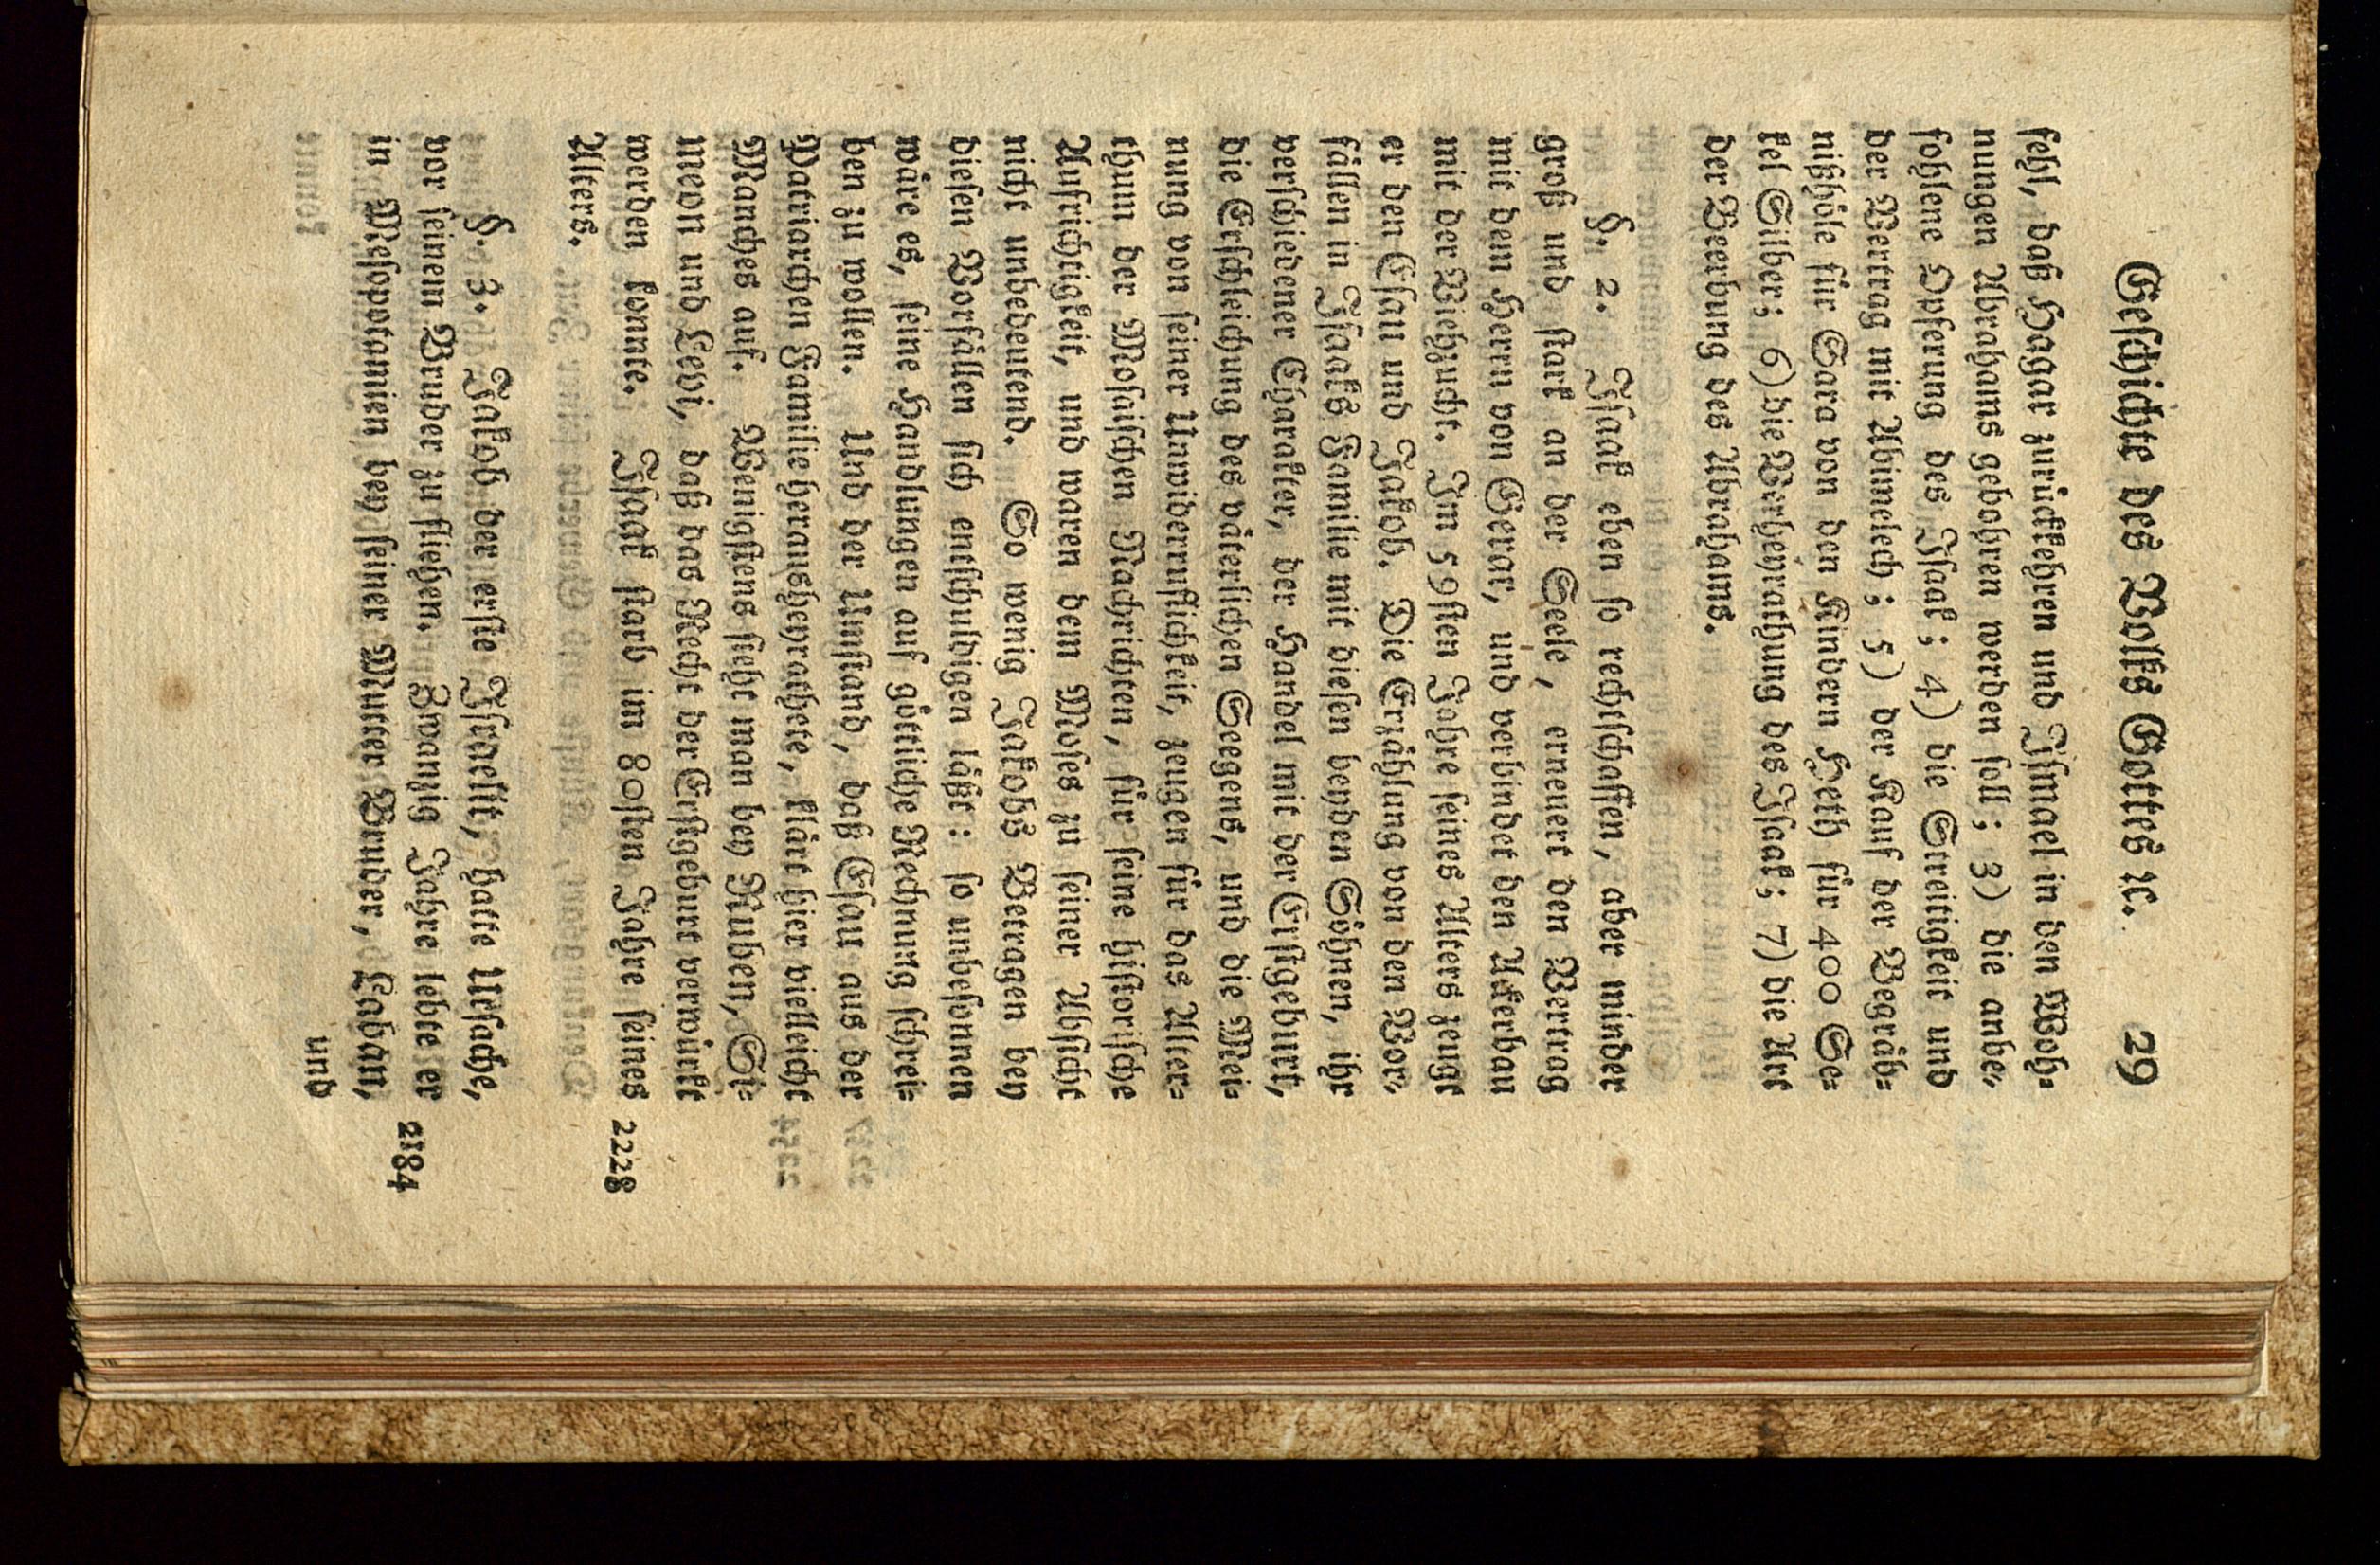 Geschichte des Volks Gottes ꝛc. 29
fehl, daß Hagar zurückkehren und Ismael in den Woh-
nungen Abrahams gebohren werden soll; 3) die anbe-
fohlene Opferung des Isaak; 4) die Streitigkeit und
der Vertrag mit Abimelech; 5) der Kauf der Begräb-
nißhöle für Sara von den Kindern Heth für 400 Se-
kel Silber; 6) die Verheyrathung des Isaak; 7) die Art
der Beerbung des Abrahams.
§. 2. Isaak eben so rechtschaffen, aber minder
groß und stark an der Seele, erneuert den Vertrag
mit dem Herrn von Gerar, und verbindet den Ackerbau
mit der Viehzucht. Im 59sten Jahre seines Alters zeugt
er den Esau und Jakob. Die Erzählung von den Vor-
fällen in Isaaks Familie mit diesen beyden Söhnen, ihr
verschiedener Charakter, der Handel mit der Erstgeburt,
die Erschleichung des väterlichen Seegens, und die Mei-
nung von seiner Unwiderruflichkeit, zeugen für das Alter-
thum der Mosaischen Nachrichten, für seine historische
Aufrichtigkeit, und waren dem Moses zu seiner Absicht
nicht unbedeutend. So wenig Jakobs Betragen bey
diesen Vorfällen sich entschuldigen läßt: so unbesonnen
wäre es, seine Handlungen auf göttliche Rechnung schrei-
ben zu wollen. Und der Umstand, daß Esau aus der
Patriarchen Familie heraushe​yrathete, klärt hier vielleicht
Manches auf. Wenigstens sieht man bey Ruben, Si-
meon und Levi, daß das Recht der Erstgeburt verwürkt
werden konnte. Isaak starb im 80sten Jahre seines 2228
Alters.
§. 3. Jakob der erste Israelit, hatte Ursache,
vor seinem Bruder zu fliehen. Zwanzig Jahre lebte er 2184
in Mesopotamien bey seiner Mutter Bruder, Laban,
und